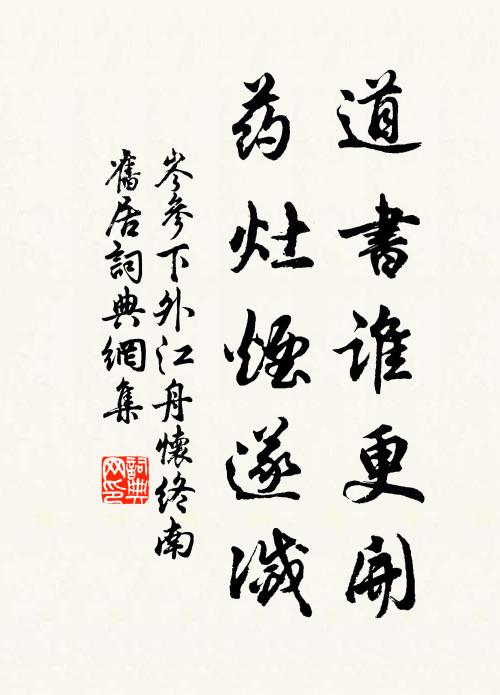 道書谁更開
药灶煙遂滅
岑参下外江舟懷終南
舊居詞典網集
詞典网印